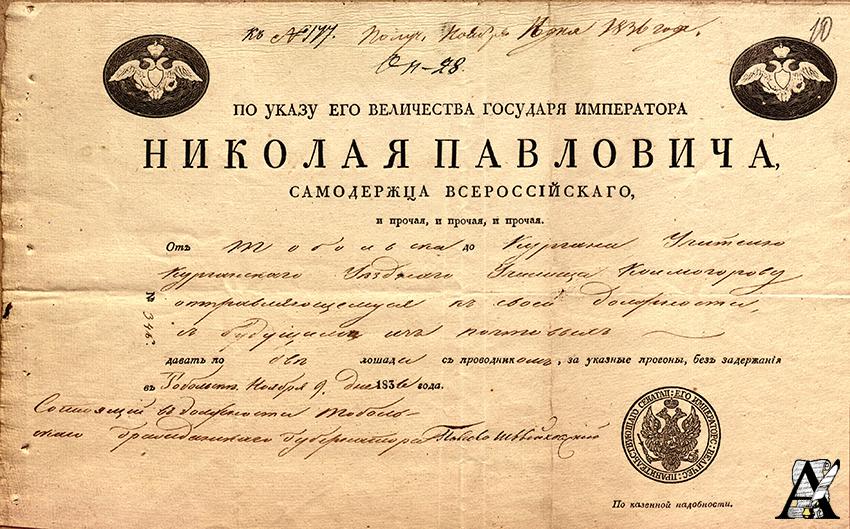 къ № 177. Получ. Ноября дня 1836 года.
10
ПО УКАЗУ ЕГО ВЕЛИЧЕСТВА ГОСУДАРЯ ИМПЕРАТОРА
НИКОЛАЯ ПАВЛОВИЧА,
САМОДЕРЖЦА ВСЕРОССІЙСКАГО,
и прочая, и прочая, и прочая.
Отъ Тобольска до Кургана Учителю
Курганскаго Уѣзднаго Училища Космогорову
отправляющемуся къ своей должности,
съ будущимъ изъ почтовыхъ
№ 346.
давать по двѣ лошади съ проводникомъ, за указные прогоны, безъ задержанія
въ Тобольскѣ, Ноября 9. дня 1836 года.
Состоящій въ должности Тоболь-
скаго гражданскаго Губернатора
По казенной надобности.